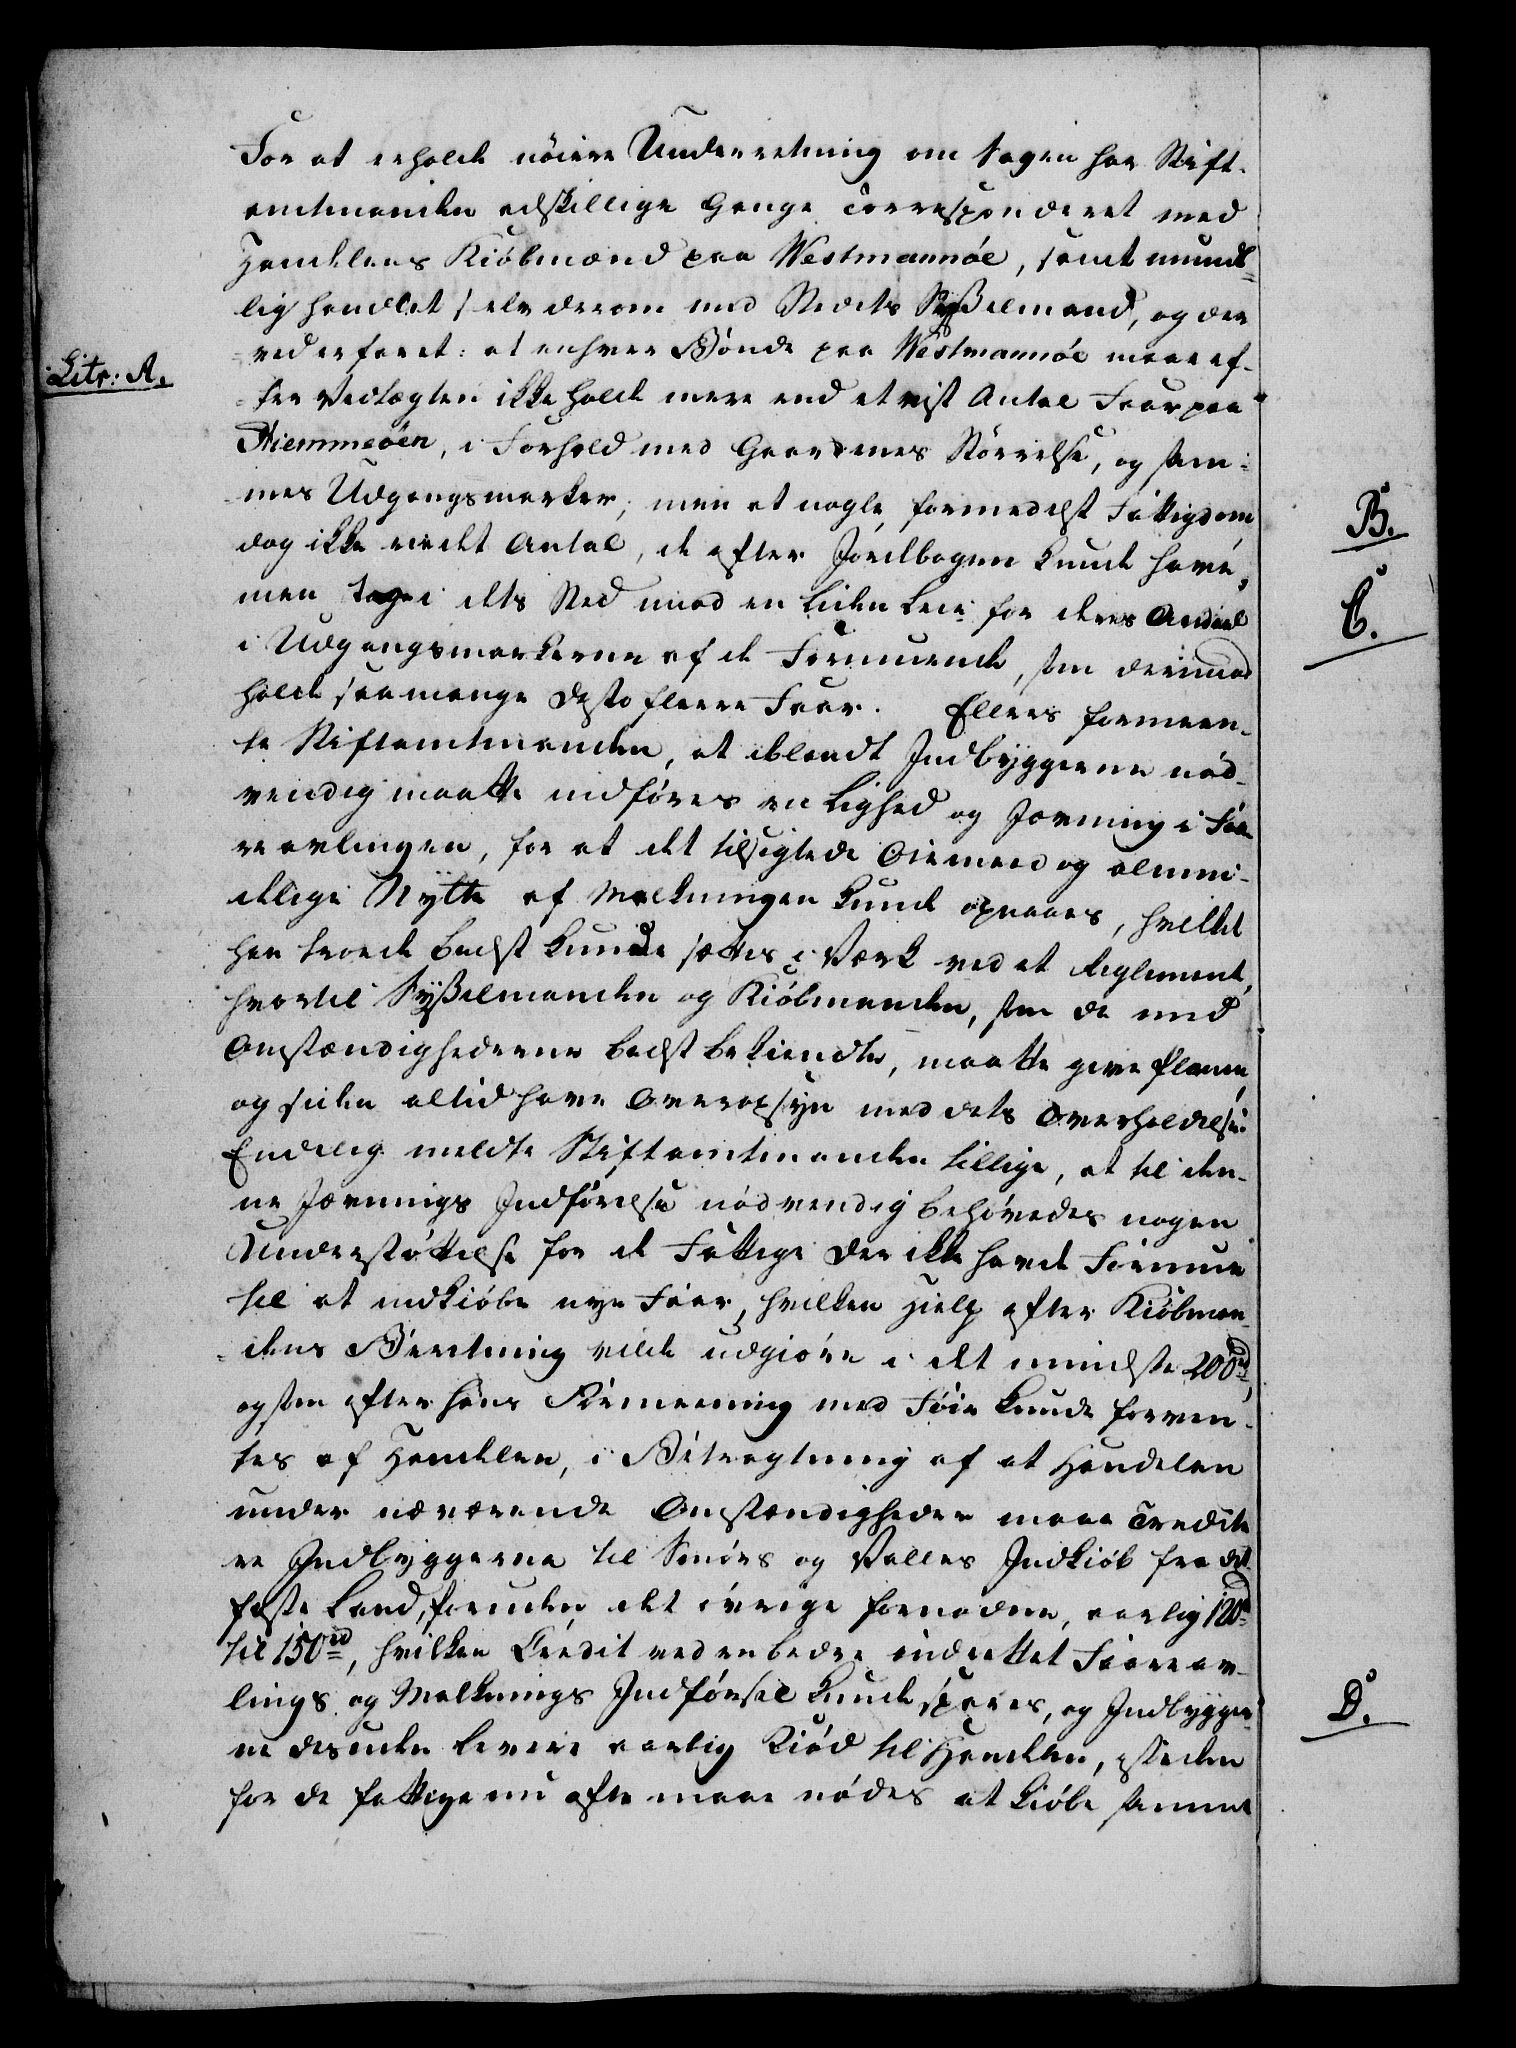 For at erholde nöiere Underretning om Sagen har Stift-
amtmanden adskillige Gange Corresponderet med
Handelens Kiöbmænd paa Westmannöe, samt mundt-
lig handlet selv derom med Stedets Sysselmand, og der
Litr: A.
-ved erfaret: at enhver Bönde paa Westmannöe maae ef-
-ter Vedtægten ikke holde mere end et vist Antal Faar paa
Hiemmeöen, i Forhold med Gaardenes Störrelse, og sam-
mes Udgangsmarker; men at nogle, formedelst Fattigdom
B.
dog ikke eie det Antal, de efter Jordbogen kunde have,
men tage i dets Sted mod en liden Leie for deres Andeel
C.
i Udgangsmarkerne af de Formuende, som derimod
holde saa mange desto fleere Faar. Ellers formeen-
te Stiftamtmanden, at iblandt Indbyggerne nöd-
vendig maatte indföres en Lighed og Jevning i Faa
reavlingen, for at det tilsigtede Öiemeed og almin-
delige Nytte af Malkningen kunde opnaaes, hvilket
han troede bedst kunde sættes i Værk ved et Reglement,
hvortil Sysselmanden og Kiöbmanden, som de med
Omstændighederne bedst bekiendte, maatte give Planen,
og siden altid have Overopsyn med dets Overholdelse.
Endelig meldte Stiftamtmanden tillige, at til den-
ne Jævnings Indförelse nödvendig behövedes nogen
Understöttelse for de Fattige der ikke havde Formue
til at indkiöbe nye Faar, hvilken Hielp efter Kiöbman-
-dens Beretning vilde udgiöre i det mindste 200 rd,
og som efter hans Formeening med Föie kunde forven-
tes af Handelen, i Betragtning af at Handelen
under nærværende Omstændigheder maae Credite
re Indbyggerne til Smörs og Valles Indkiöb fra det
faste Land, foruden det övrige fornödne, aarlig 120 rd
til 150 rd, hvilken Credit ved en bedre indrettet Faareav-
lings og Malknings Indförsel kunde spares, og Indbygger-
D.
ne desuden levere aarlig Kiöd til Handelen, isteden
for de fattige nu ofte maae nödes at kiöbe samme